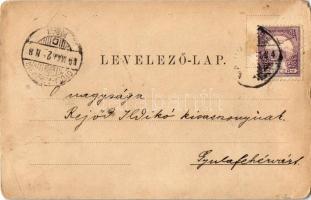 LEVELEZŐ-LAP.
nagysága
Rejőd Ildikó kisasszonynak
Gyulafehérvárt